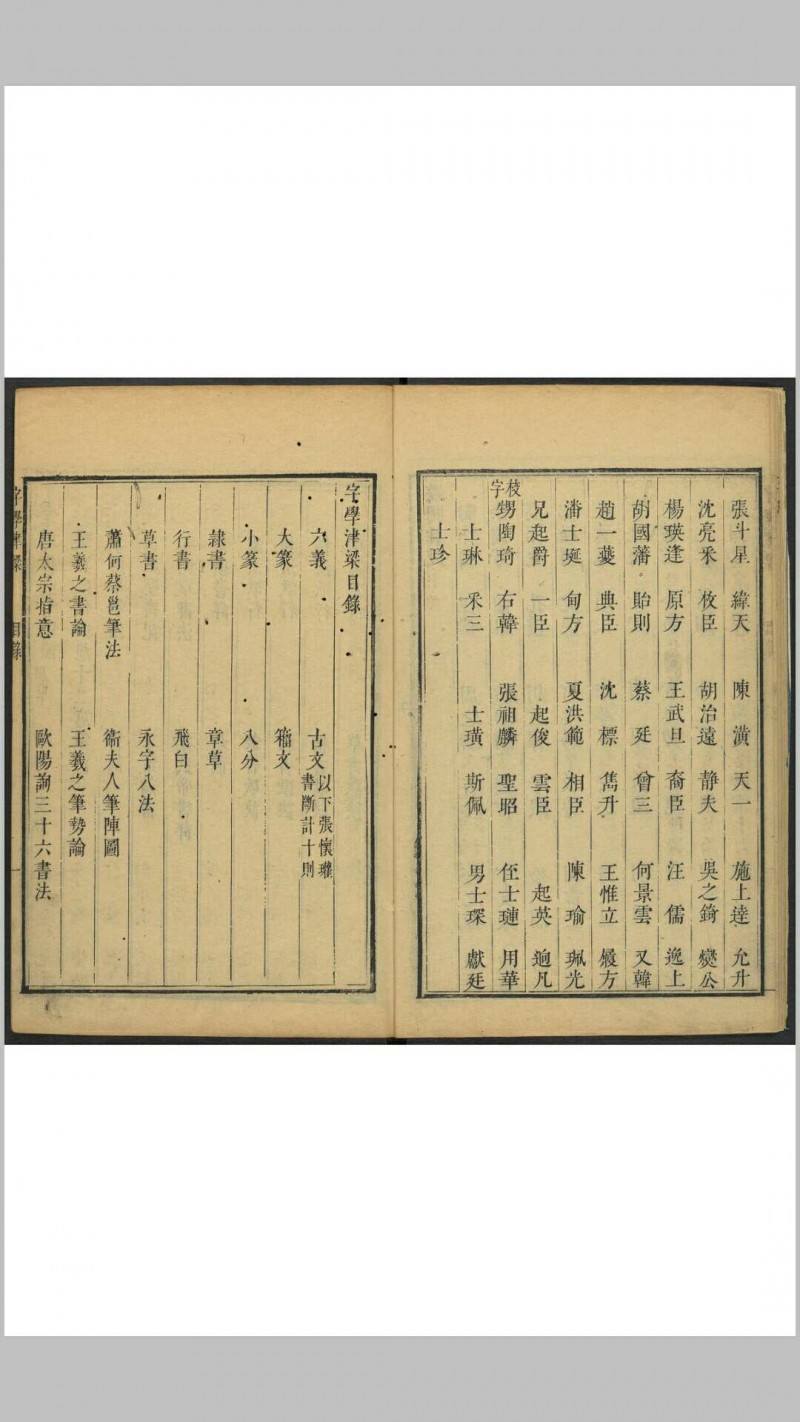 張斗星 緯天 陳潢 天一 施上達 允升
沈亮采 枚臣 胡治遠 靜夫 吳之錡 燮公
楊瑛逢 原方 王武旦 裔臣 汪儒 逸上
胡國藩 貽則 蔡廷 曾三 何景雲 又韓
趙一夔 典臣 沈標 雋升 王惟立 履方
潘士埏 甸方 夏洪範 相臣 陳瑜 珮光
兄起爵 一臣 起俊 雲臣 起英 逈凡
校字
甥陶琦 右韓 張祖麟 聖昭 侄士璉 用華
士琳 釆三 士璜 斯佩 男士琛 獻廷
士珍
字學津梁目錄
六義 古文以下張懷瓘書斷計十則
大篆 籀文
小篆 八分
隸書 章草
行書 飛白
草書 永字八法
蕭何蔡邕筆法 衞夫人筆陣圖
王羲之書論 王羲之筆勢論
唐太宗指意 歐陽詢三十六書法
字學津梁 目錄 一